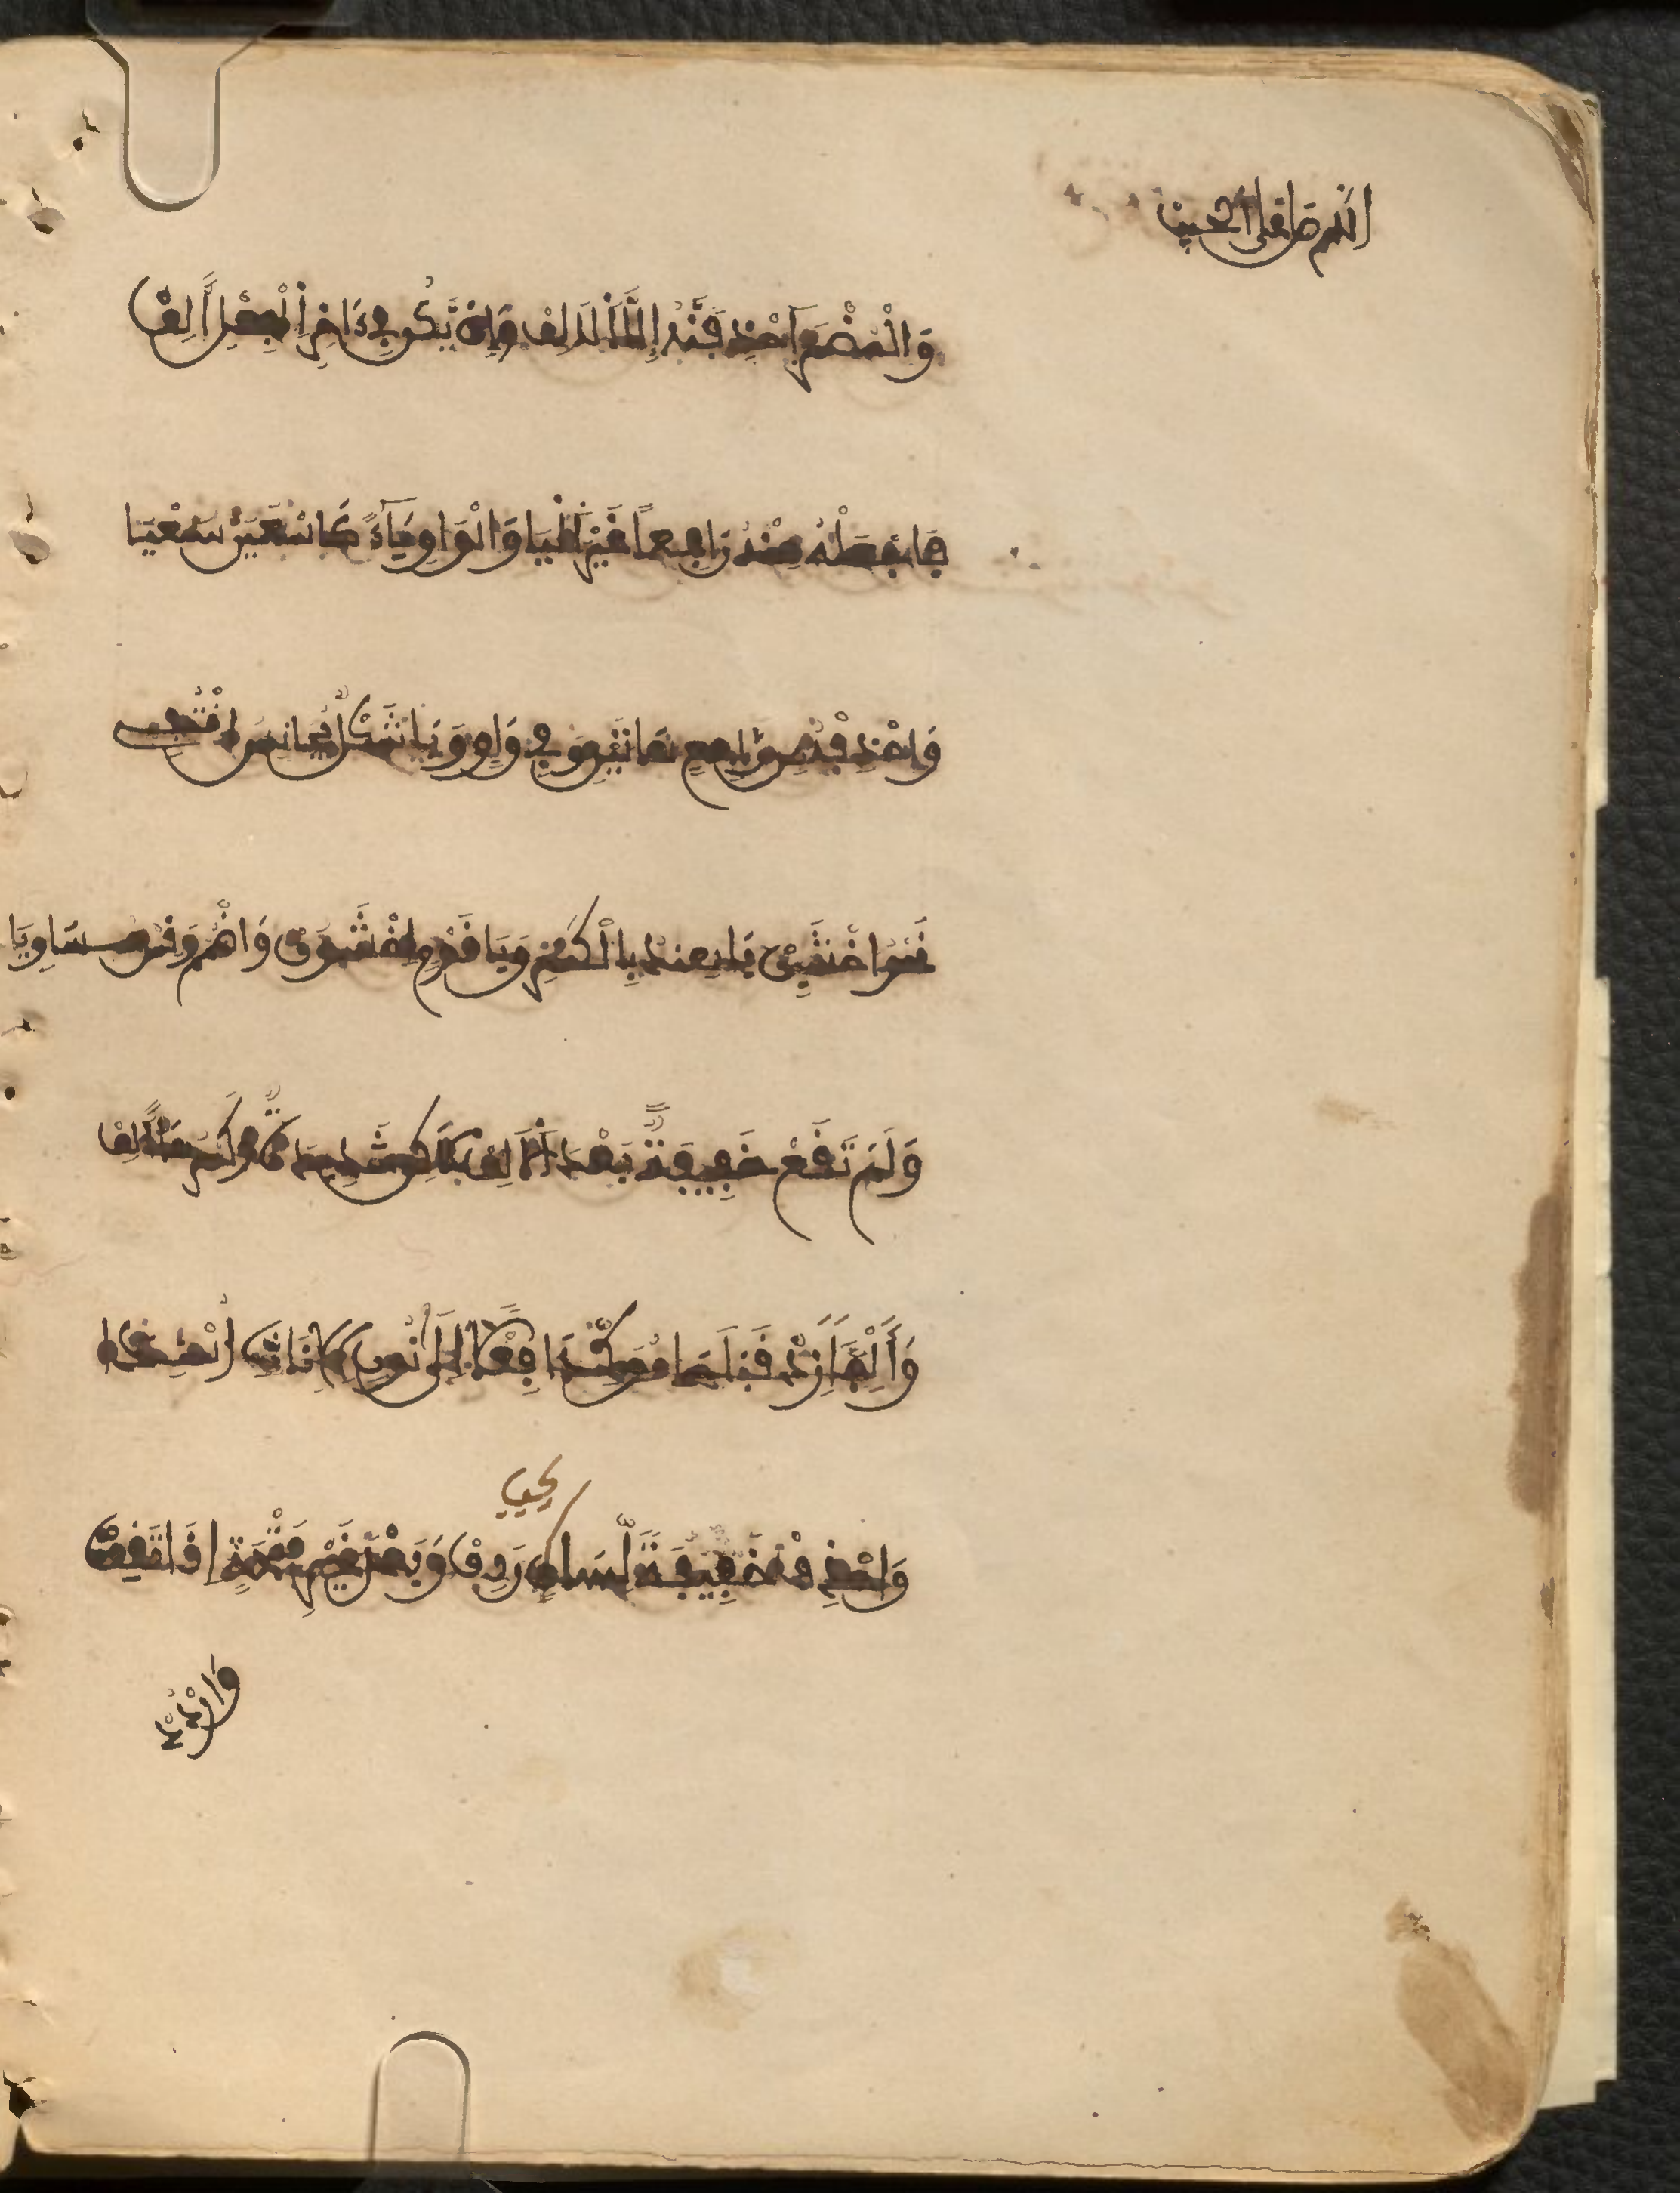 اللهم صل على الحبيب
وَالْمُضْمَرَ احْذِفَنَّهُ إِلَّا الْالِفْ وَإِنْ يَّكُن فِي ءَاخِرِ الْفِعْلِ أَلِفْ
فَاجْعَلْهُ مِنْهُ رَافِعاً غَيْرَ الْيَا وَالْوَاوِ يَآءً كَاسْعَيَنَّ سَعْيَا
وَاحْذِفْهُ مِن رَّافِعِ هَاتَيْنِ وَفِي وَاوٍ وَيَا شَكْلٌ مُّجَانِسٌ اقْتُفِي
نَحْوُ اخْشَيِنْ يَا هِنْدُ بِالْكَسْرِ وَيَا قَوْمِ اخْشَوُنْ وَاضْمُمْ وَقِسْ مُسَاوِيَا
وَلَمْ تَقَعْ خَفِيفَةٌ بَعْدَ الْالِفْ لَاكِن شَدِيدَةٌ وَكَسْرُهَا أُلِفْ
وَأَلِفاً زِدْ قَبْلَهَا مُؤَكِّدَا فِعْلاً إِلَى نُونِ الْإِنَاثِ أُسْنِدَا
وَاحْذِفْ خَفِيفَةً لِّسَاكِنٍ رَدِفْ وَبَعْدَ غَيْرِ فَتْحَةٍ إِذَا تَقِفْ
وَارْدُدْ